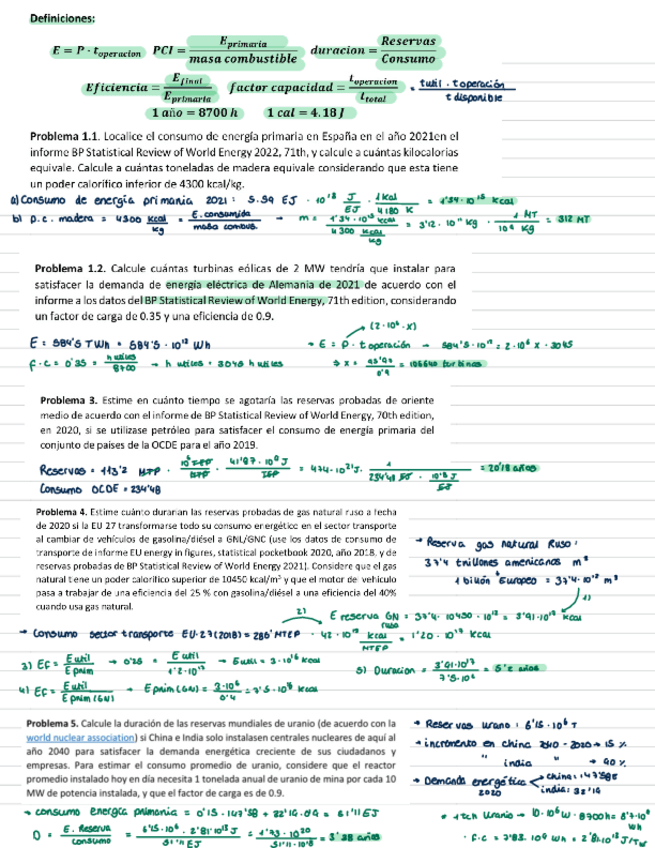 Definiciones:
E = P · t_operacion   PCI = E_primaria / masa combustible   duracion = Reservas / Consumo
Eficiencia = E_final / E_primaria   factor capacidad = t_operacion / t_total = t util · t operación / t disponible
1 año = 8700 h   1 cal = 4.18 J
Problema 1.1. Localice el consumo de energía primaria en España en el año 2021en el
informe BP Statistical Review of World Energy 2022, 71th, y calcule a cuántas kilocalorías
equivale. Calcule a cuántas toneladas de madera equivale considerando que esta tiene
un poder calorífico inferior de 4300 kcal/kg.
a) Consumo de energía primaria 2021: 5.59 EJ · 10^18 J/EJ · 1 kcal / 4180 = 1'34 · 10^15 kcal
b) p.c. madera = 4300 kcal/kg = E. consumida / masa combus. → m = 1'34 · 10^15 kcal / 4300 kcal/kg = 3'12 · 10^11 kg · 1 MT / 10^9 kg = 312 MT
Problema 1.2. Calcule cuántas turbinas eólicas de 2 MW tendría que instalar para
satisfacer la demanda de energía eléctrica de Alemania de 2021 de acuerdo con el
informe a los datos del BP Statistical Review of World Energy, 71th edition, considerando
un factor de carga de 0.35 y una eficiencia de 0.9.
(2·10^6·x)
E = 584'5 TWh = 584'5 · 10^12 Wh   · E = P · t operación → 584'5 · 10^12 = 2·10^6 x · 3045
f.c = 0'35 = h utiles / 8700 → h utiles = 3045 h utiles   ⇒ x = / 0'9 = 106640 turbinas
Problema 3. Estime en cuánto tiempo se agotaría las reservas probadas de oriente
medio de acuerdo con el informe de BP Statistical Review of World Energy, 70th edition,
en 2020, si se utilizase petróleo para satisfacer el consumo de energía primaria del
conjunto de países de la OCDE para el año 2019.
Reservas = 113'2 MTP · 10^6 TEP / MTP · 41'87 · 10^9 J / TEP = 474 · 10^21 J · 1 / 234'48 EJ · 10^18 J / EJ = 20'18 años
Consumo OCDE = 234'48
Problema 4. Estime cuánto durarían las reservas probadas de gas natural ruso a fecha
de 2020 si la EU 27 transformarse todo su consumo energético en el sector transporte
al cambiar de vehículos de gasolina/diésel a GNL/GNC (use los datos de consumo de
transporte de informe EU energy in figures, statistical pocketbook 2020, año 2018, y de
reservas probadas de BP Statistical Review of World Energy 2021). Considere que el gas
natural tiene un poder calorífico superior de 10450 kcal/m³ y que el motor de vehículo
pasa a trabajar de una eficiencia del 25 % con gasolina/diésel a una eficiencia del 40%
cuando usa gas natural.
→ Reserva gas natural Ruso:
37'4 trillones americanos m³
1 billón Europeo = 37'4 · 10^12 m³
1)
2) E reserva GN ruso = 37'4 · 10450 · 10^12 = 3'91 · 10^17 kcal
→ Consumo sector transporte EU-27(2018) = 286 MTEP · 42 · 10^13 kcal / MTEP = 1'20 · 10^17 kcal
3) Ef = E util / E prim → 0'25 = E util / 1'2·10^17 → E util = 3·10^16 kcal   5) Duracion = 3'91·10^17 / 7'5·10^16 = 5'2 años
4) Ef = E util / E prim(GN) → E prim(GN) = 3·10^16 / 0'4 = 7'5 · 10^16 kcal
Problema 5. Calcule la duración de las reservas mundiales de uranio (de acuerdo con la
world nuclear association) si China e India solo instalasen centrales nucleares de aquí al
año 2040 para satisfacer la demanda energética creciente de sus ciudadanos y
empresas. Para estimar el consumo promedio de uranio, considere que el reactor
promedio instalado hoy en día necesita 1 tonelada anual de uranio de mina por cada 10
MW de potencia instalada, y que el factor de carga es de 0.9.
→ Reservas urano: 6'15 · 10^6 T
→ incremento en china 2040 - 2020 → 15 %
" india → 90 %
→ Demanda energética 2020 china: 147'58E
india: 32'16
→ consumo energía primaria = 0'15 · 147'58 + 32'16 · 0'9 = 51'11 EJ
D = E. Reserva / consumo = 6'15 · 10^6 · 2'81·10^13 J / 51'11 EJ = 1'73 · 10^20 / 51'11 · 10^18 = 3'38 años
· 1 ton Uranio → 10·10^6 W · 8700h = 8'7·10^10 Wh
· f.c = 7'83 · 10^9 Wh = 2'8·10^13 J/Tn